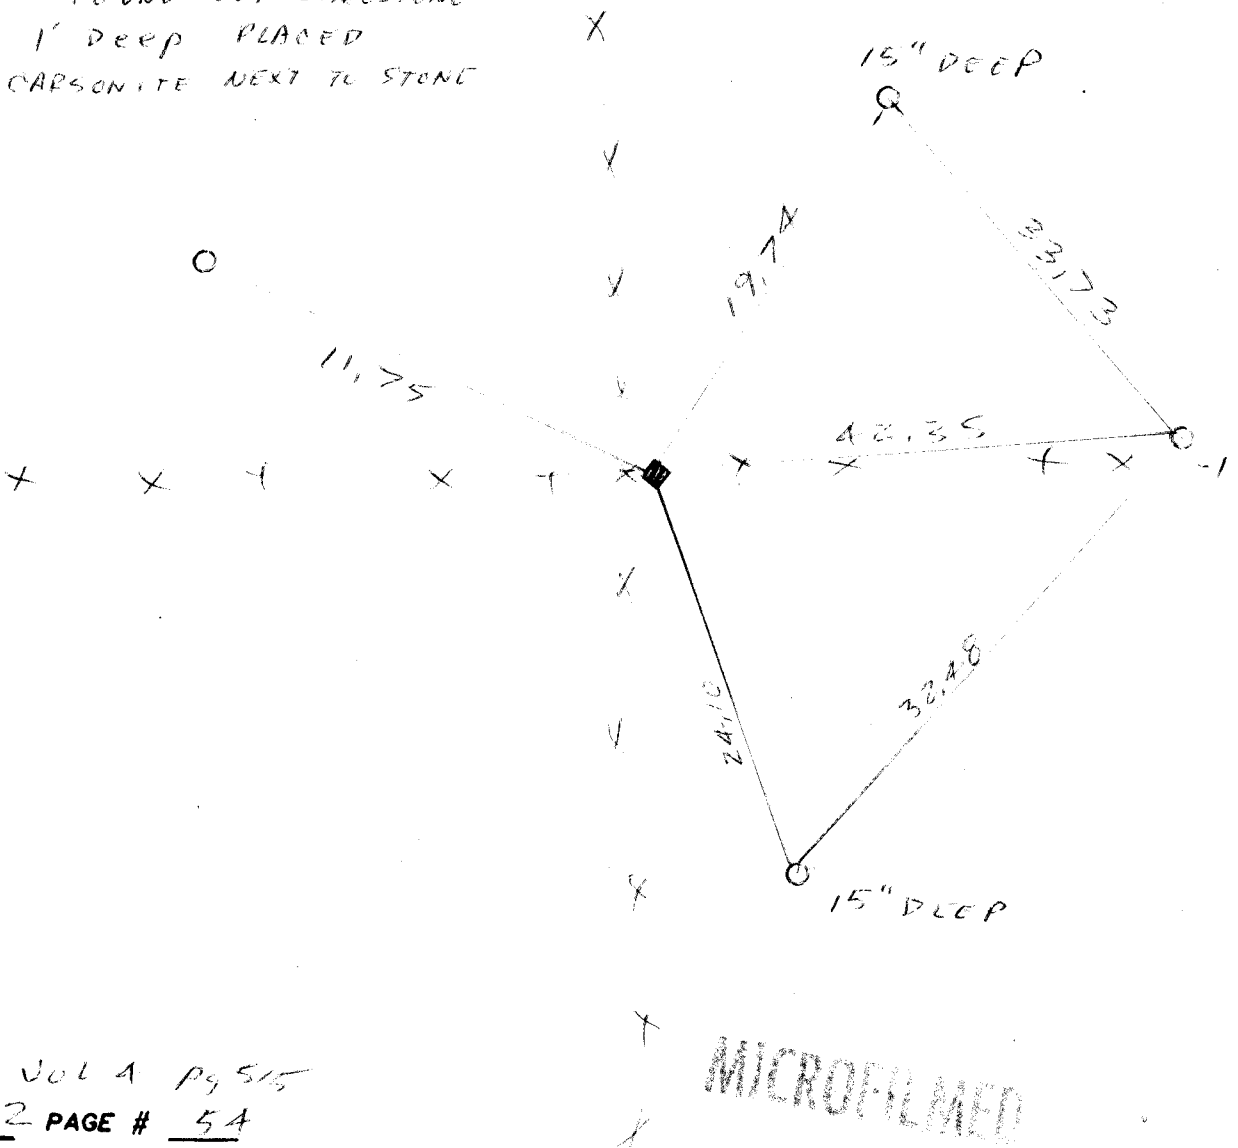 FOUND
1' Deep PLACED
CARSONITE NEXT TO STONE
15" DEEP
33.73
19.74
11.75
42.35
-1
32.48
24.10
15" DEEP
VOL 4 Pg 515
2 PAGE # 54
MICROFILMED